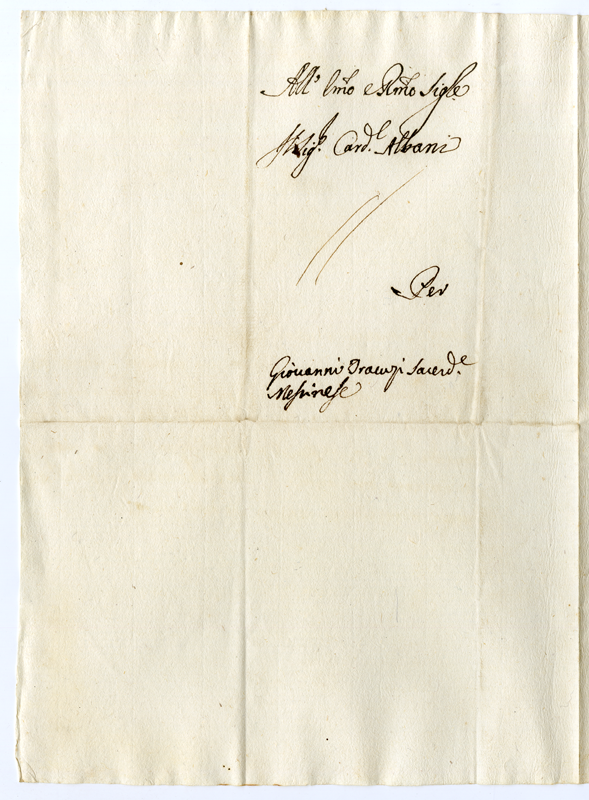 All.º Em̃o e Rm̃o Sig.re
Il Sig.r Card.l Albani
Per
Giovanni Dracuzi Sacerd.e
Messinese